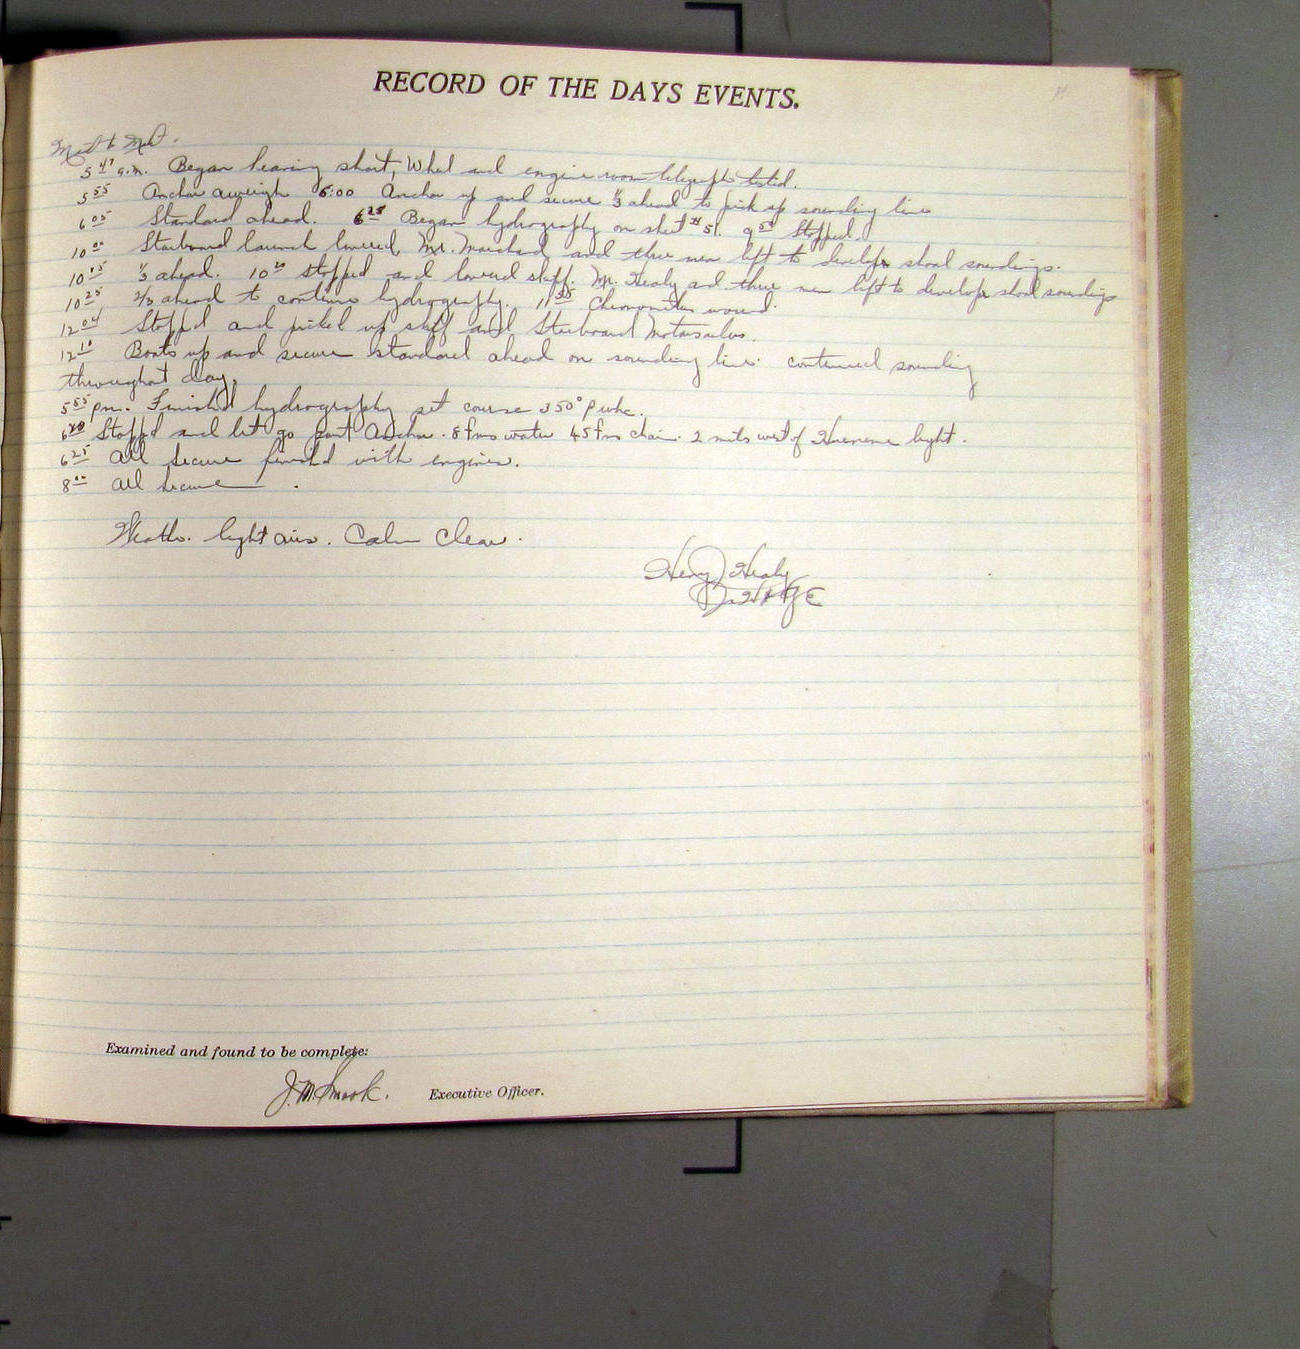 RECORD OF THE DAYS EVENTS.
Mid to Mid.
5 47 a.m. Began heaving short, Wheel and engine room telegraphs tested.
5 55 Anchor aweigh 6:00 Anchor up and secure 1/3 ahead to pick up sounding line
6 05 Standard ahead. 6 28 Began hydrography on sheet #51. 9 54 Stopped.
10 00 Starboard launch lowered, Mr. and three men left to develop shoal soundings.
10 15 1/3 ahead. 10 20 stopped and lowered skiff. Mr. Healy and three men left to develop shoal soundings
10 25 2/3 ahead to continue hydrography. 11 35 Chronometers wound.
12 04 Stopped and picked up skiff and Starboard
12 10 Boats up and secure standard ahead on sounding line. continued sounding
throughout day.
5 55 pm. Finished hydrography set course 350° pwhc.
6 20 Stopped and let go port Anchor. 8 fms water 45 fms chain. 2 mils west of Hueneme light.
6 25 All secure finished with engines.
8 00 All secure.
Weather. light airs. Calm Clear.
Henry J Healy
Examined and found to be complete:
J. M. Smook. Executive Officer.